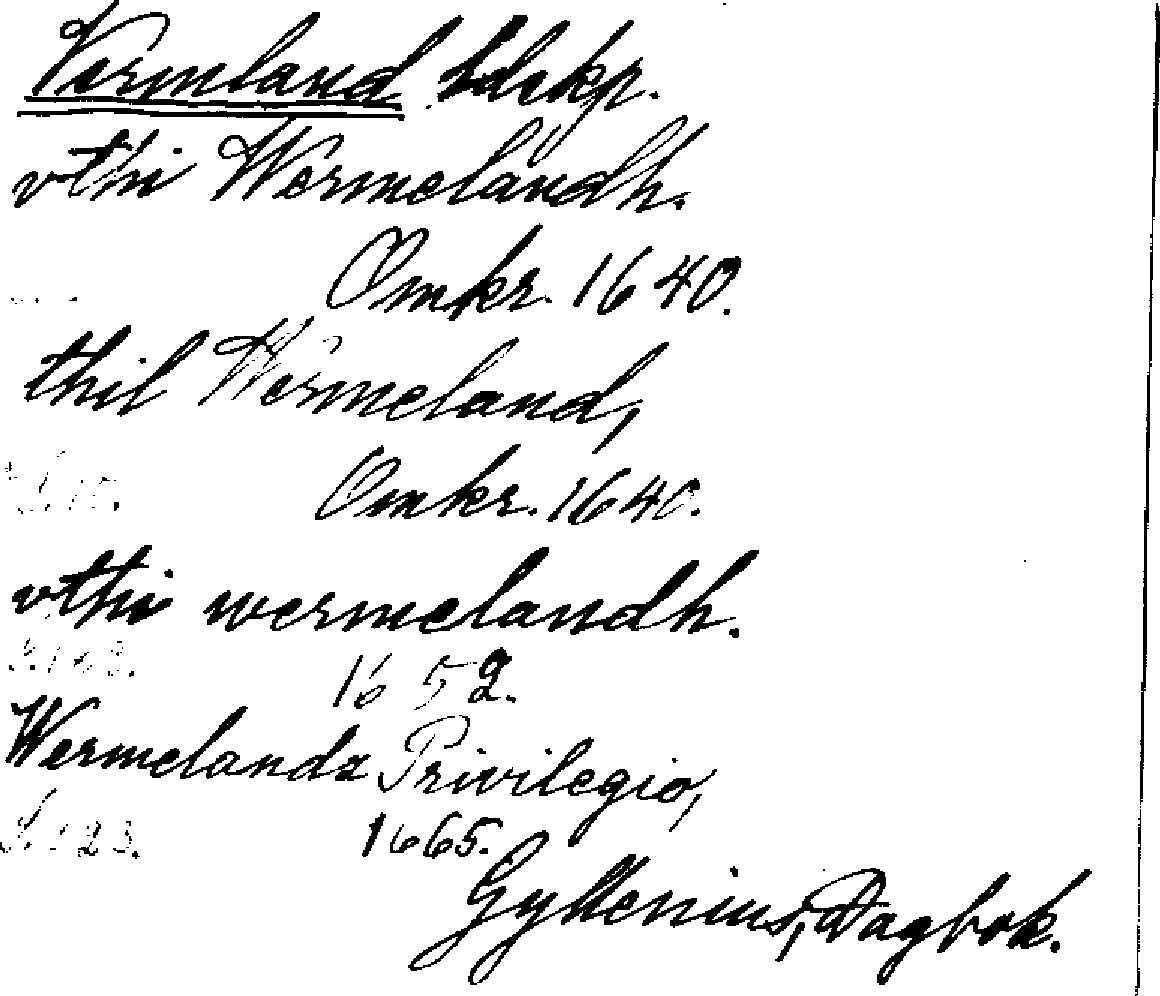 Vermland ldskp.
vthi Wermelandh.
Omkr. 1640.
thil Wermeland,
Omkr. 1640.
vthi wermelandh.
1652.
Wermelandz Privilegio,
1665.
Gyllenius, Dagbok.